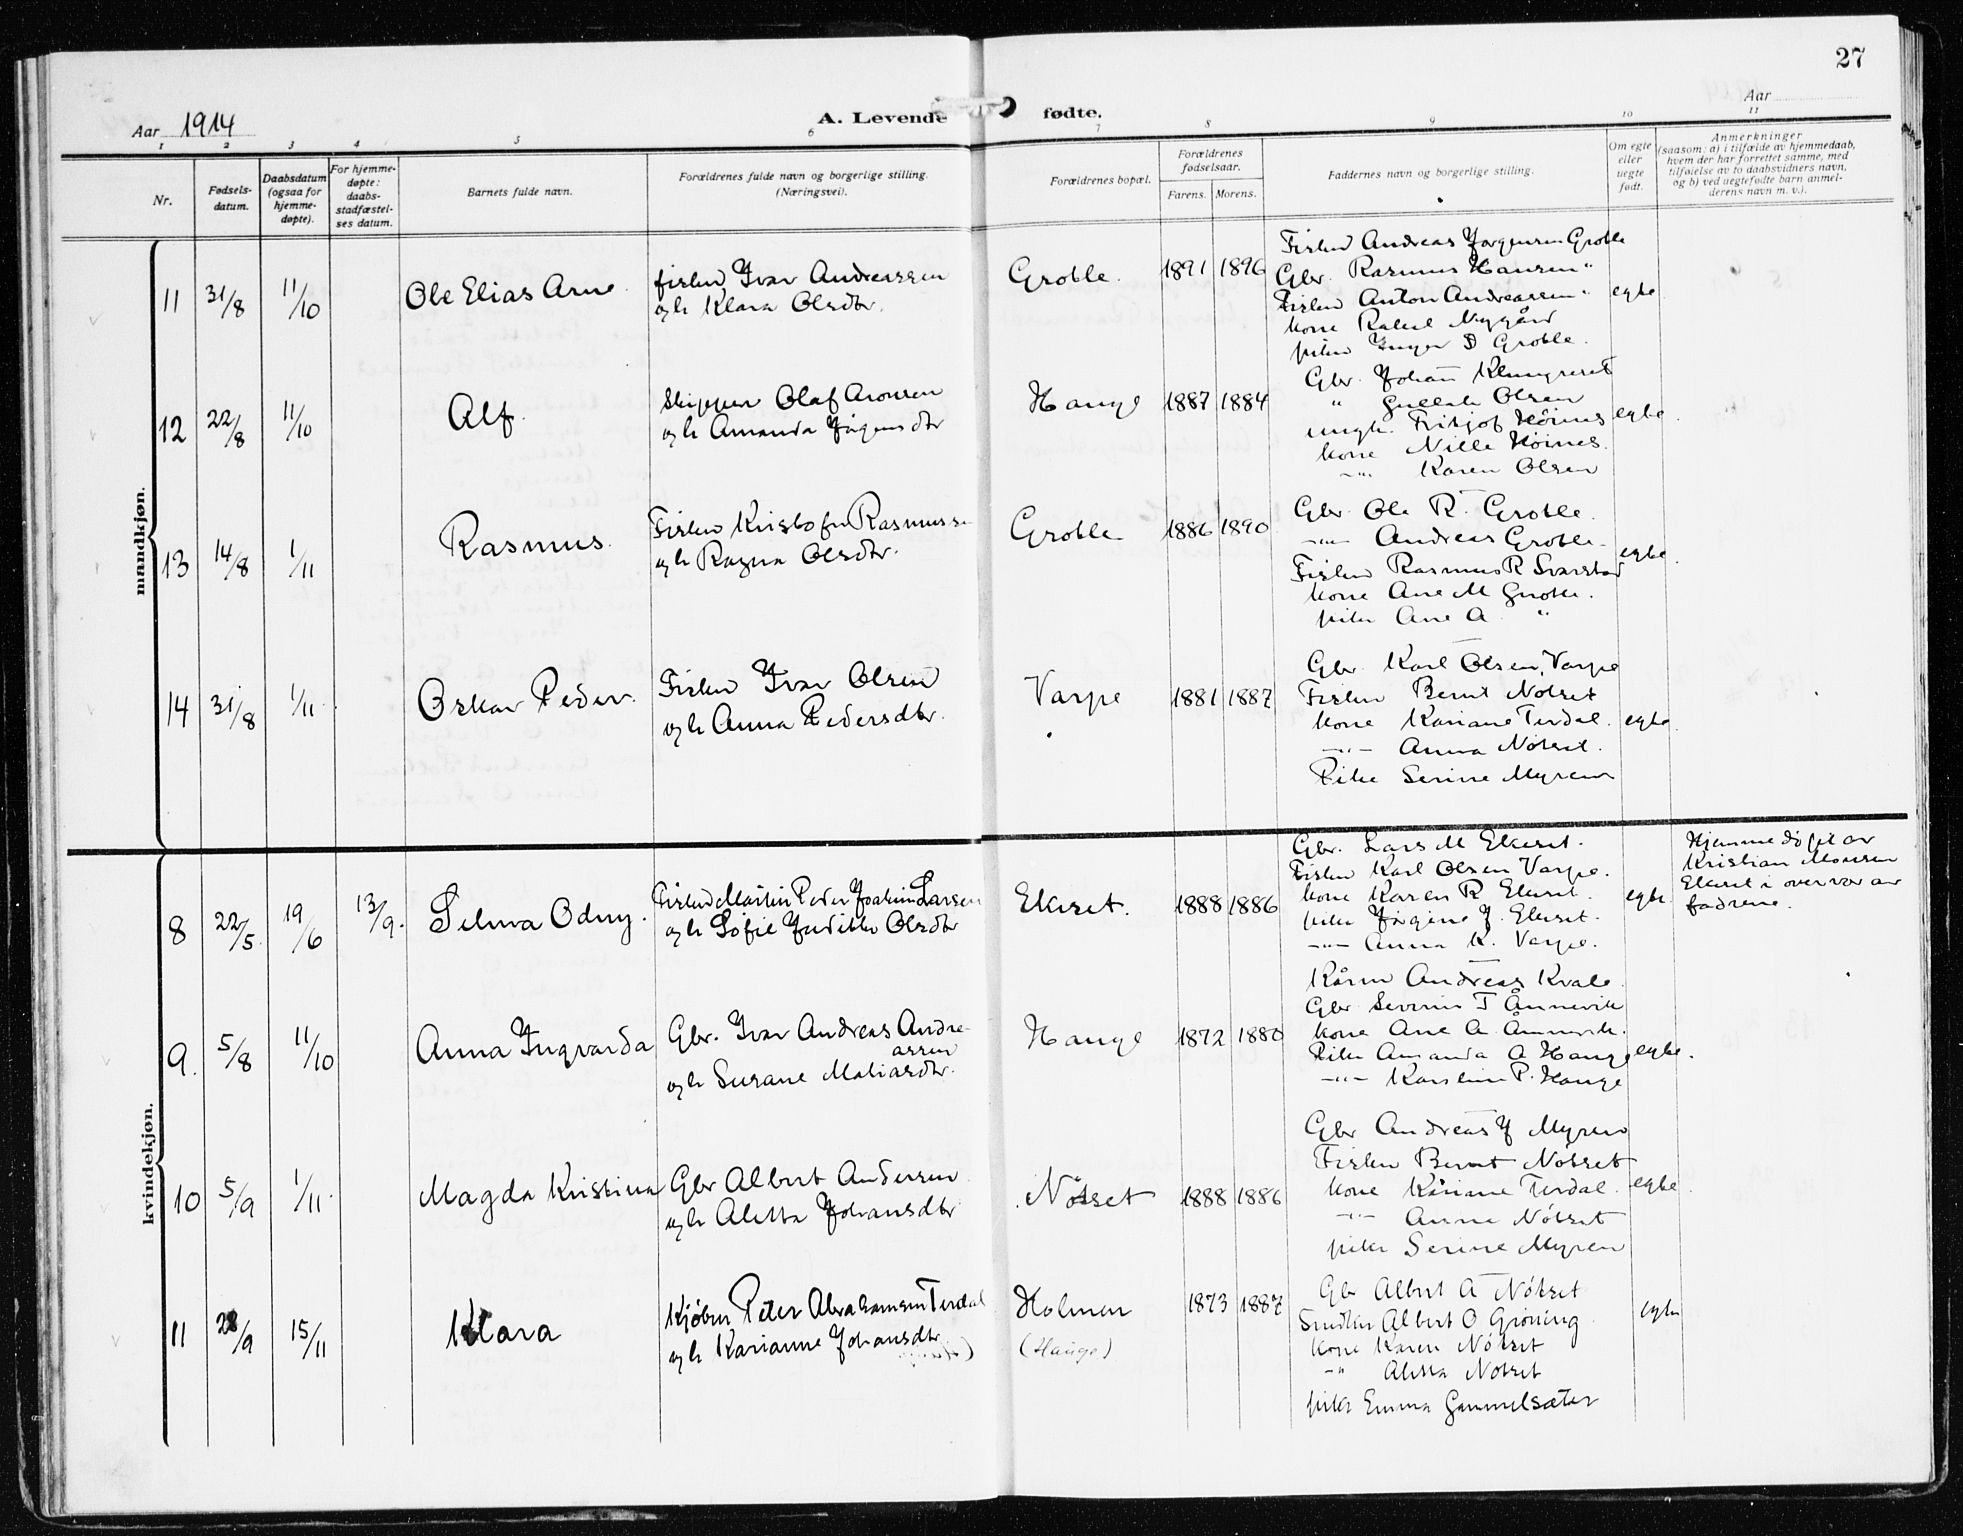 27
Aar 1914
A. Levende fødte.
Aar
1 2 3 4 5 6 7 8 9 10 11
Nr.
Fødsels-
datum.
Daabsdatum
(ogsaa for
hjemme-
døpte).
For hjemme-
døpte:
daabs-
stadfæstel-
ses datum.
Barnets fulde navn.
Forældrenes fulde navn og borgerlige stilling.
(Næringsvei).
Forældrenes bopæl.
Forældrenes
fødselsaar.
Farens. Morens.
Faddernes navn og borgerlige stilling.
Om egte
eller
uegte
født.
Anmerkninger
(saasom: a) i tilfælde av hjemmedaab,
hvem der har forrettet samme, med
tilføielse av to daabsvidners navn,
og b) ved uegtefødte barn anmel-
derens navn m. v.).
mandkjøn.
11 31/8 11/10 Ole Elias Arne
fisker Ivar Andreassen
og h Klara Olsdtr.
Groble. 1891 1896
Fisker Andreas Jørgensen Groble
Gbr. Rasmus Hansen "
Fisker Anton Andreassen "
kone Rakel Nygård
pike Inger D Groble.
egte
12 22/8 11/10 Alf.
Skipper Olaf Aronsen
og h Amanda Jørgensdtr
Hauge 1887 1884
Gbr. Johan Klungreset
" Gullak Olsen
ungk. Fritjof Høines
kone Nille Høines.
-"- Karen Olsen
egte
13 14/8 1/11 Rasmus.
Fisker Kristofer Rasmussen
og h Ragna Olsdtr.
Groble 1886 1890
Gbr. Ole R. Groble.
-"- Andreas Groble
Fisker Rasmus R Svarstad
kone Ane M Groble.
pike Ane A. "
egte
14 31/8 1/11 Oskar Peder.
Fisker Ivar Olsen
og h Anna Pedersdtr.
Varpe 1881 1887
Gbr. Karl Olsen Varpe
Fisker Bernt Nølset
kone Kariane Terdal.
-"- Anna Nølset.
Pike Serine Myren
egte
kvindekjøn.
8 22/5. 19/6 13/9. Selma Odny.
Fisker Martin Peder Joakim Larsen
og h Sofie Judikke Olsdtr
Ekset. 1888 1886
Gbr. Lars M Ekset.
Fisker Karl Olsen Varpe.
kone Karen R Ekset.
pike Jørgine J. Ekset.
-"- Anna K. Varpe.
egte
Hjemmedøpt av
Kristian Monsen
Ekset i overvær av
fadrene.
9. 5/8 11/10 Anna Ingvarda
Gbr. Ivar Andreas Andre-
assen
og h Susane Matiasdtr.
Hauge 1872 1880
Kårm Andreas Kvale
Gbr Severin T Ånnevik
kone Ane A. Ånnevik.
Pike Amanda A Hauge
-"- Karoline P. Hauge
egte.
10 5/9 1/11. Magda Kristina
Gbr Albert Andersen
og h Aletta Johansdtr
Nølset 1888 1886
Gbr Andreas J Myren
Fisker Bernt Nølset
kone Kariane Terdal.
-"- Anne Nølset
pike Serine Myren
egte
11 28/9 15/11 Klara
Kjøbm Peter Abrahamsen Terdal
og h Karianne Johansdtr
Holmen
(Hauge)
1873 1887
Gbr Albert A Nølset
Snedker Albert O Grøning
kone Karen Nølset
-" Aletta Nølset
pike Emma Gammelsæter
egte